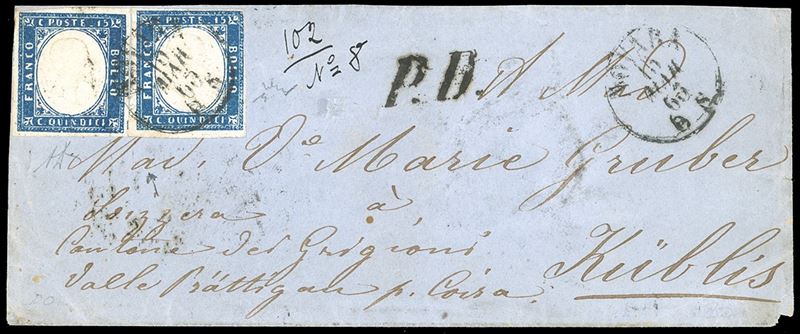 C. POSTE. 15
FRANCO
BOLLO
C. QUINDICI
C. POSTE. 15
FRANCO
BOLLO
C. QUINDICI
102
Nº 8
P.D.
MAR
63
A Mad
Mad. De Marie Gruber
à
Svizzera
Cantone dei Grigioni
Valle Prättigau p. Coira.
Küblis